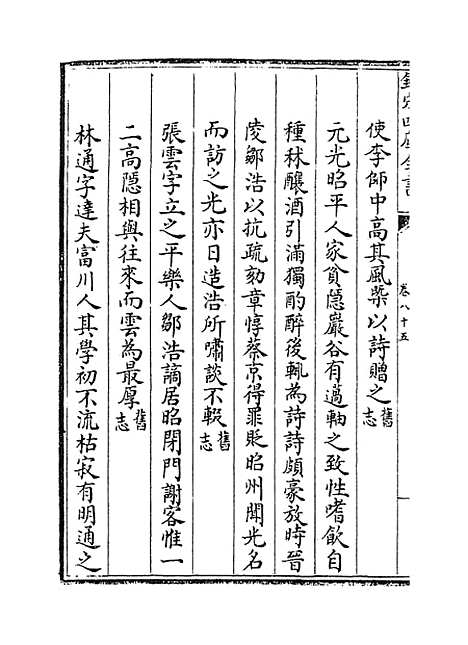 欽定四庫全書
卷八十五
使李師中高其風槩以詩贈之舊志
元光昭平人家貧隱巖谷有薖軸之致性嗜飲自
種秫釀酒引滿獨酌醉後輒為詩詩頗豪放時晉
陵鄒浩以抗疏劾章惇蔡京得罪貶昭州聞光名
而訪之光亦日造浩所嘯談不輟舊志
張雲字立之平樂人鄒浩謫居昭閉門謝客惟一
二高隱相與往來而雲為最厚舊志
林通字達夫富川人其學初不流枯寂有明通之